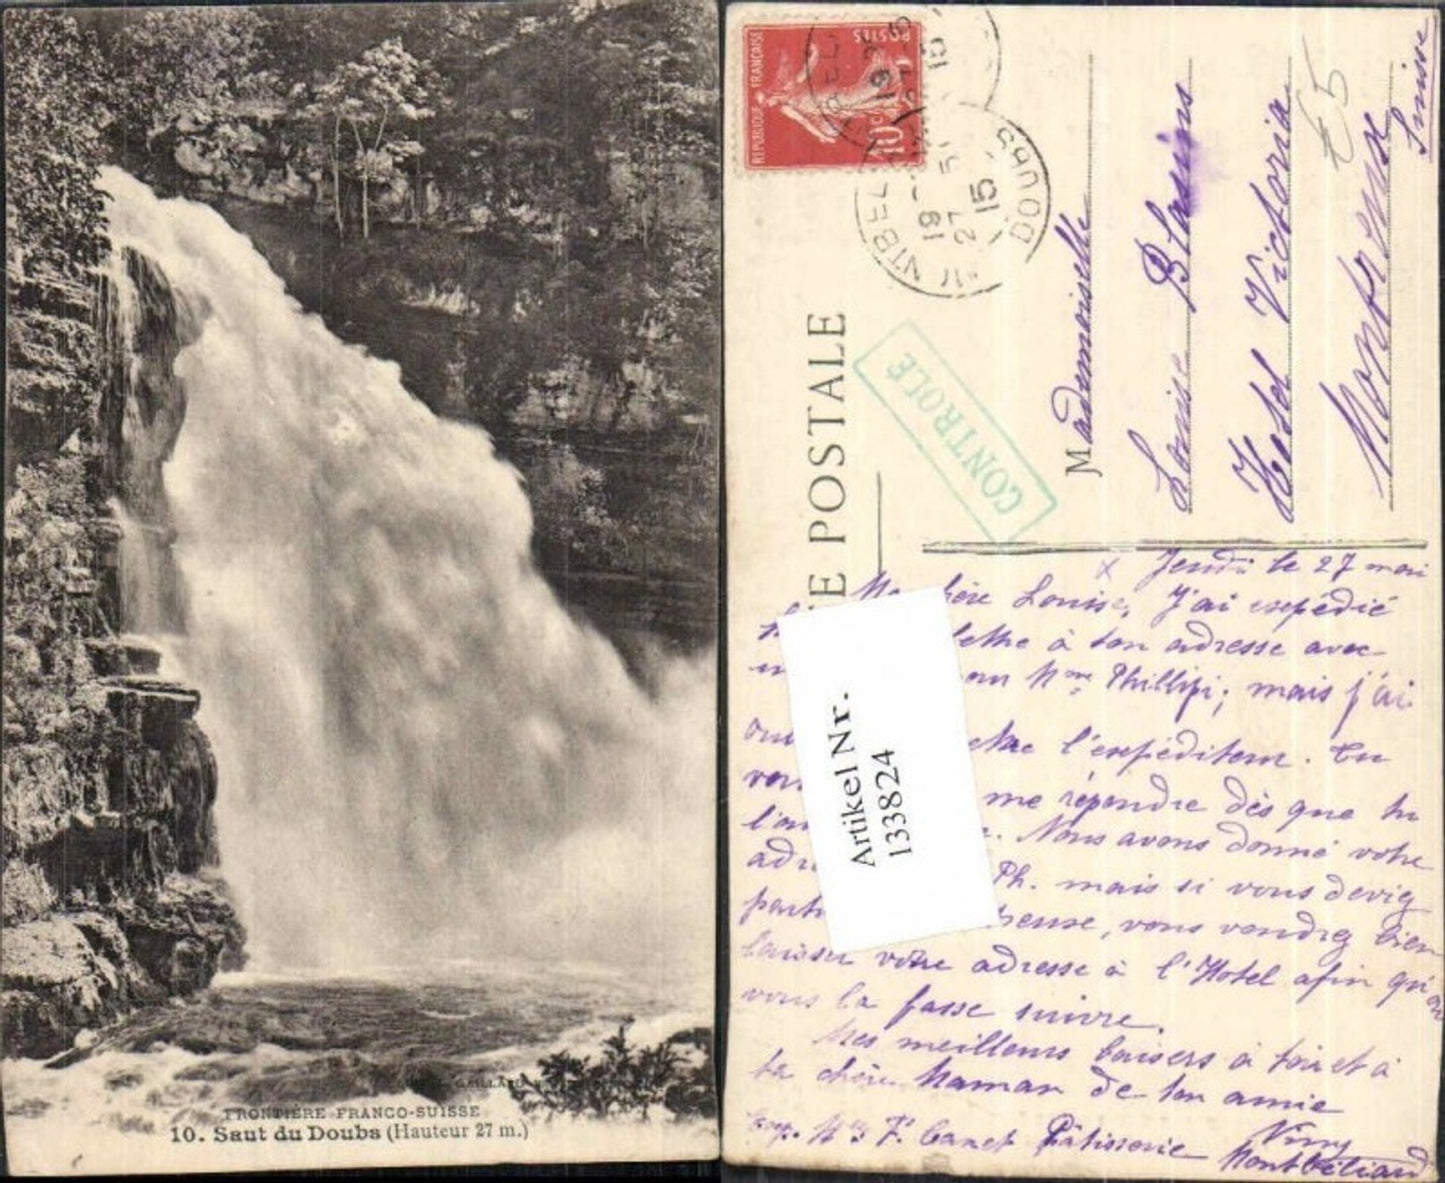 FRONTIÈRE FRANCO-SUISSE
10. Saut du Doubs (Hauteur 27 m.)
REPUBLIQUE FRANÇAISE
POSTES
10c
19 -
27 - 5
15
DOUBS
E POSTALE
CONTROLE
Mademoiselle
Louise Blasius
Hotel Victoria
Montreuse
Suisse
£5
Jeudi le 27 mai
chère Louise, J'ai expédié
lettre à ton adresse avec
Mme Phillipi; mais j'ai
l'expéditeur. Tu
me répondre dès que tu
l'au
Nous avons donné votre
adre
Ph. mais si vous deviez
part
reuse, vous voudrez bien
laisser votre adresse à l'Hotel afin qu'on
vous la fasse suivre.
Mes meilleurs baisers à toi et à
ta chère Maman de ton amie
exp. Mlle F. Canet Pâtisserie
Montbéliard
Artikel Nr.
133824